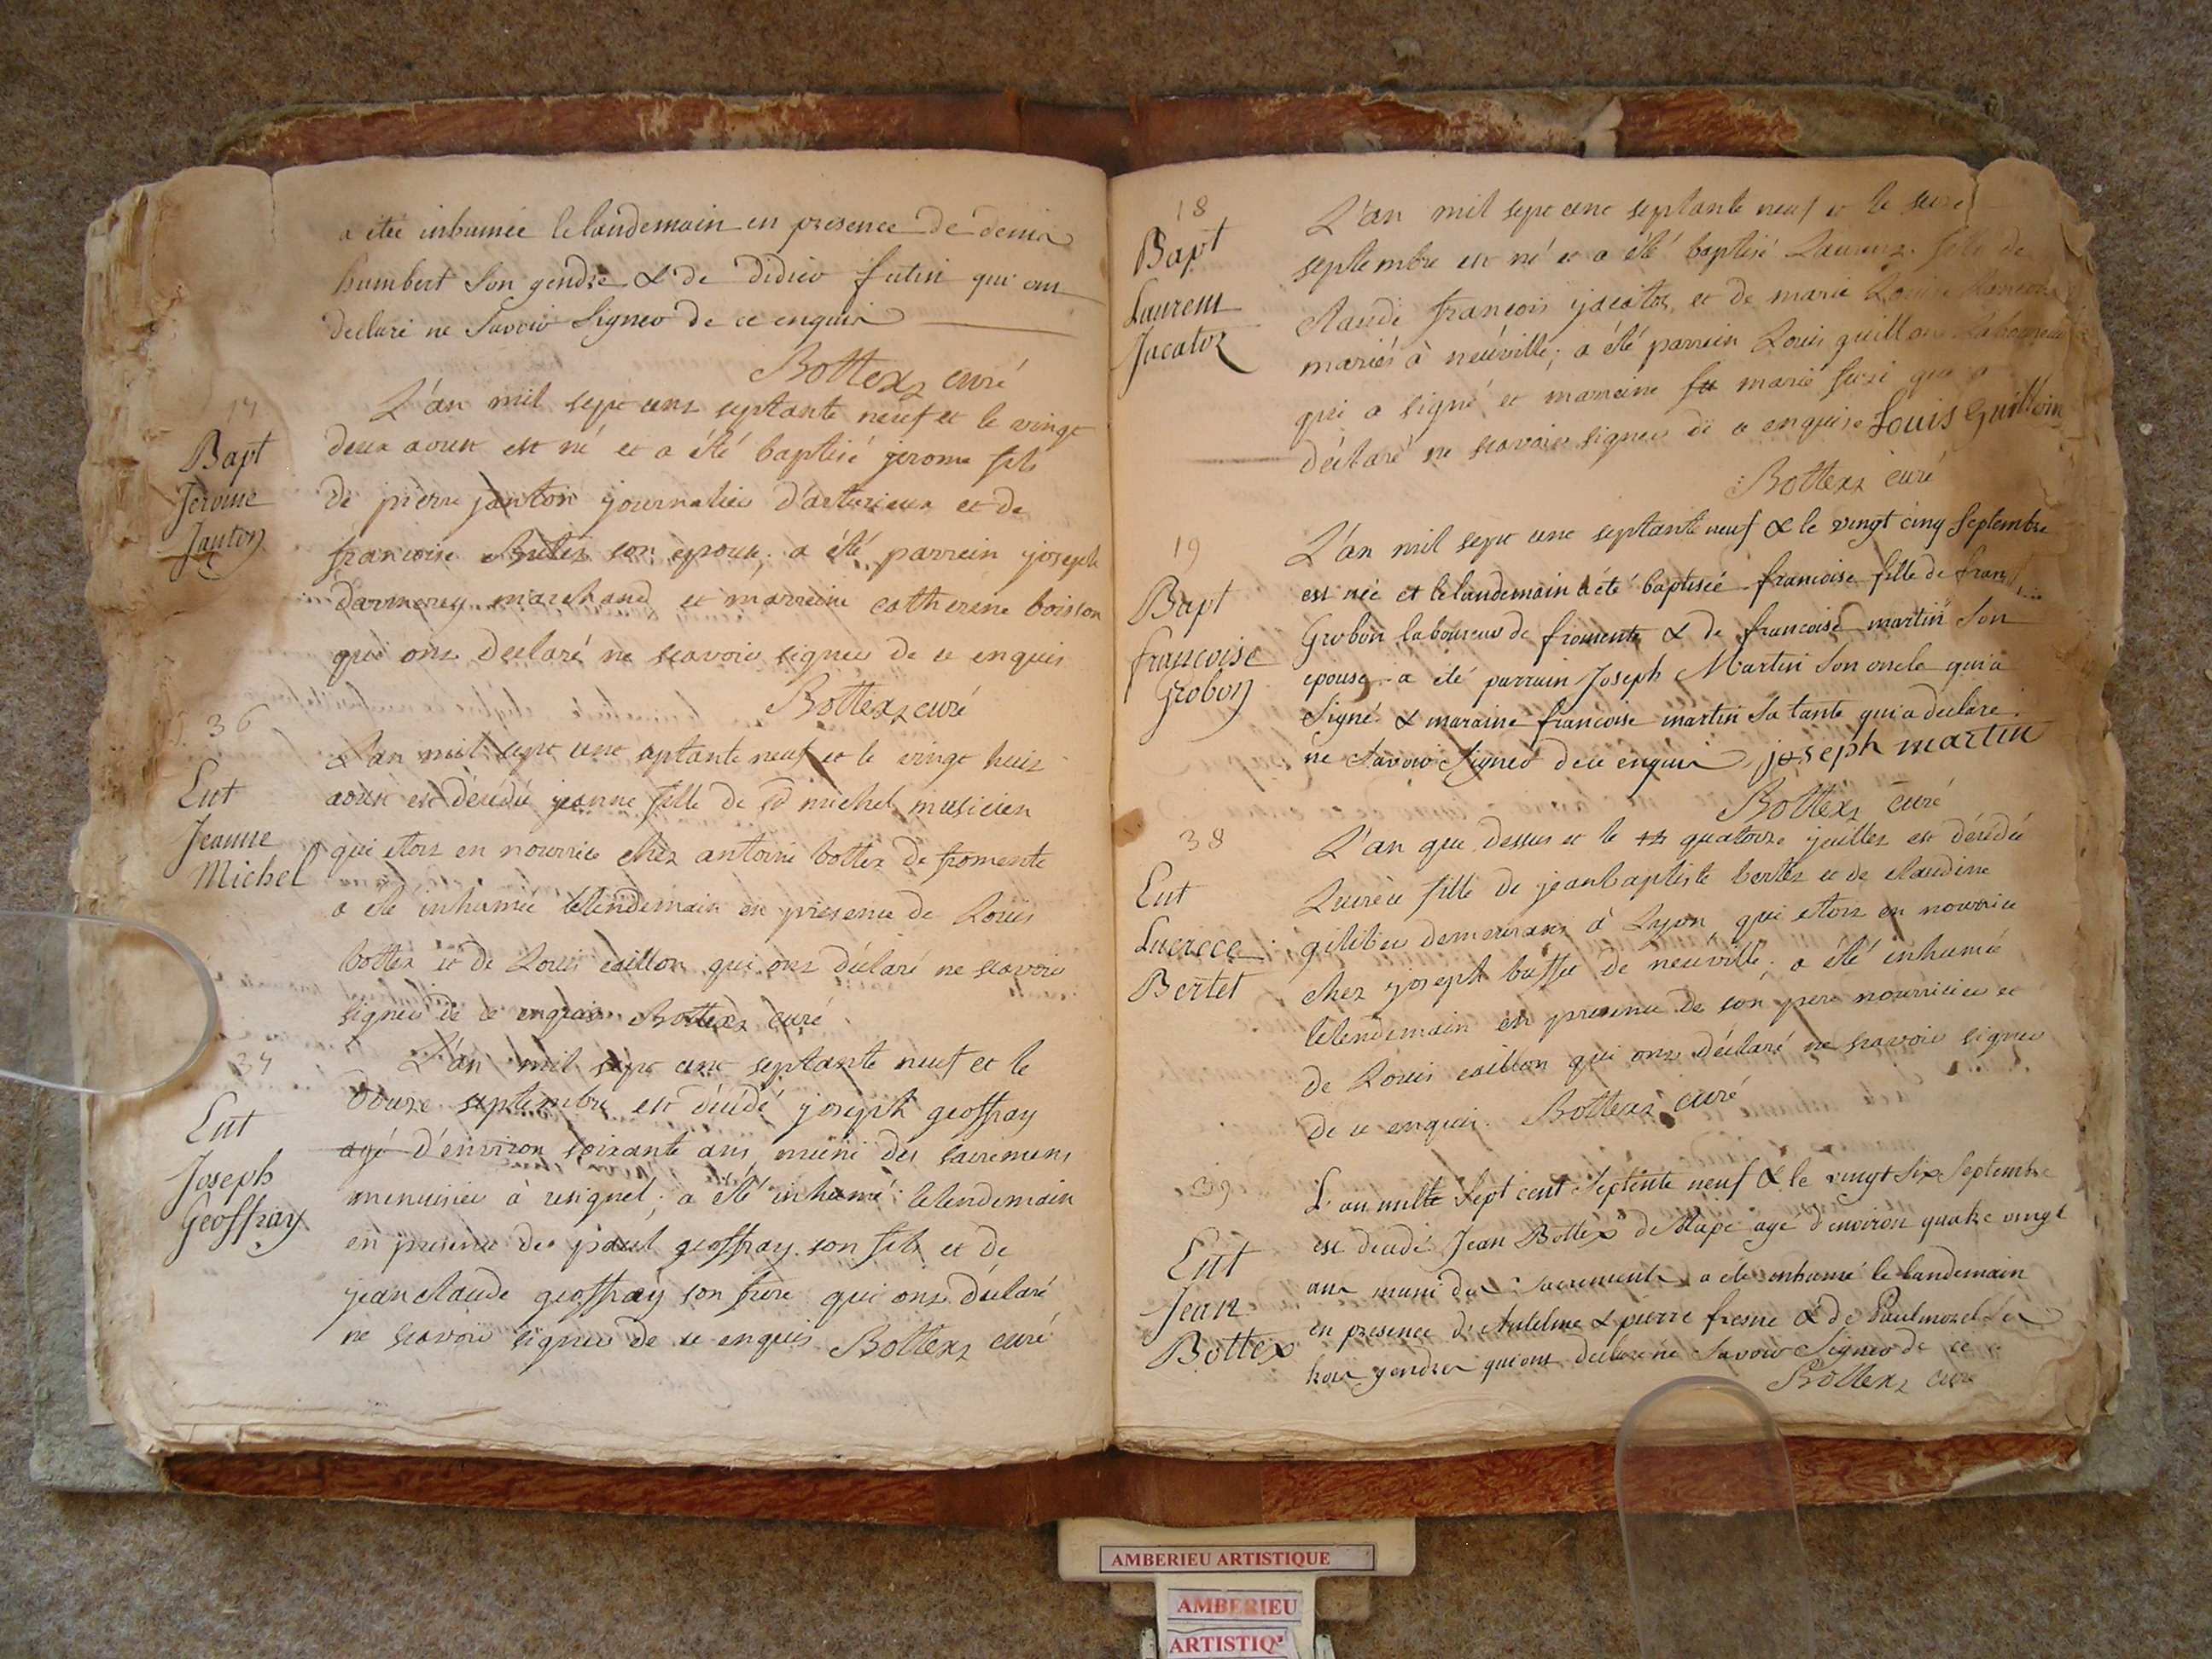 a étée inhumée le landemain en presence de denis
humbert son gendre & de didier futin qui ont
declaré ne Savoir Signer de ce enquis
Bottex curé
17
Bapt
Jerome
Janton
L'an mil sept cent septante neuf et le vingt
deux aoust est né et a été baptisé jerome fils
de pierre janton journalier d'arturieux et de
francoise son epouse, a été parrein joseph
darmerey marchand et marreine catherine boisson
qui ont declaré ne scavoir signer de ce enquis
Bottex curé
36
Ent
Jeanne
Michel
L'an mil sept cent septante neuf et le vingt huit
aoust est décédée jeanne fille de sd michel musicien
qui etoit en nourrice chez antoine bottex de fromente
a été inhumée le lendemain en presence de Louis
bottex et de Louis caillon qui ont déclaré ne scavoir
signer de ce enquis Bottex curé
37
Ent
Joseph
Geoffray
L'an mil sept cent septante neuf et le
douze septembre est décédé joseph geoffray
agé d'environ soixante ans, muni des sacremens
menuisier à resignel; a été inhumé le lendemain
en presence de paul geoffray son fils et de
jean claude geoffray son frere qui ont déclaré
ne scavoir signer de ce enquis Bottex curé
18
Bapt
Laurent
Jacatoz
L'an mil sept cent septante neuf et le seize
septembre est né et a été baptisé Laurent fils de
claude françois jacatoz, et de marie Louise
mariés à neuville; a été parrein Louis guillon
qui a signé et marreine marie qui a
déclaré ne scavoir signer de ce enquise Louis Guilloin
Bottex curé
19
Bapt
françoise
Grobon
L'an mil sept cent septante neuf & le vingt cinq Septembre
est née et le landemain a été baptisée francoise fille de
Grobon laboureur de fromente & de francoise martin Son
epouse a été parrain Joseph Martin Son oncle qui a
Signé & maraine francoise martin Sa tante qui a declaré
ne Savoir Signer de ce enquis joseph martin
Bottex curé
38
Ent
Lucrece
Bertet
L'an que dessus et le quatorze juillet est décédée
Lucrèce fille de jean baptiste bertet et de claudine
giletier demeurans à Lyon, qui etoit en nourrice
chez joseph buffet de neuville, a été inhumée
le lendemain en presence de son pere nourricier et
de Louis caillon qui ont déclaré ne scavoir signer
de ce enquis. Bottex curé
39
Ent
Jean
Bottex
L'an mille Sept cent Septente neuf & le vingt Six Septembre
est decedé Jean Bottex de agé d'environ quatre vingt
ans muni des Sacrements a été inhumé le landemain
en presence de Antelme & pierre fresne & de Paul morel Ses
trois gendres qui ont declaré ne Savoir Signer de ce
Bottex curé
AMBERIEU ARTISTIQUE
AMBERIEU
ARTISTIQ'